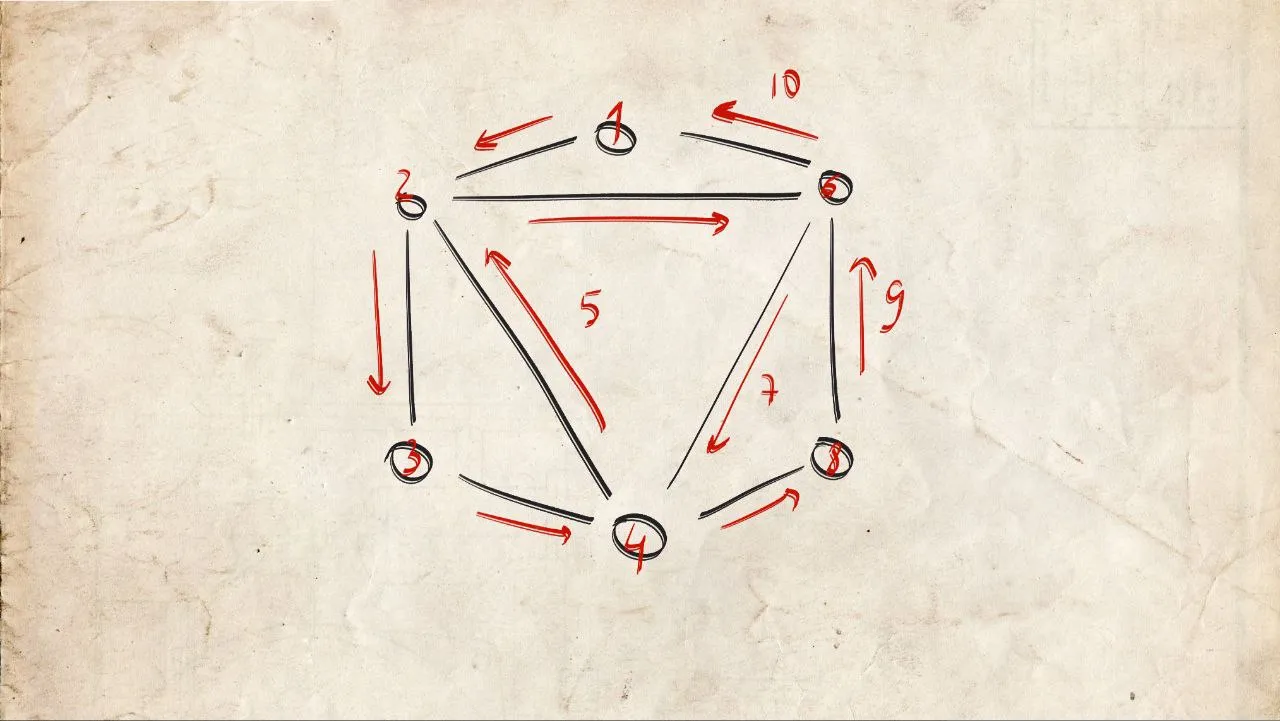 10
1
2
6
5
9
7
3
8
4